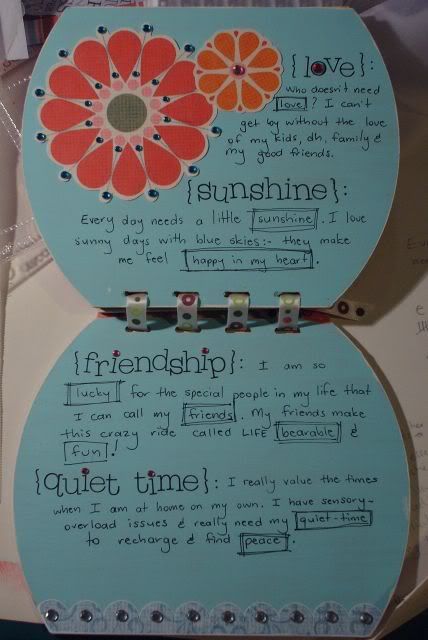 {love}:
who doesn't need
love? I can't
get by without the love
of my kids, dh, family &
my good friends.
{sunshine}:
Every day needs a little sunshine. I love
sunny days with blue skies:- they make
me feel happy in my heart.
{friendship}: I am so
lucky for the special people in my life that
I can call my friends. My friends make
this crazy ride called LIFE bearable &
fun!
{quiet time}: I really value the times
when I am at home on my own. I have sensory-
overload issues & really need my quiet-time
to recharge & find peace.